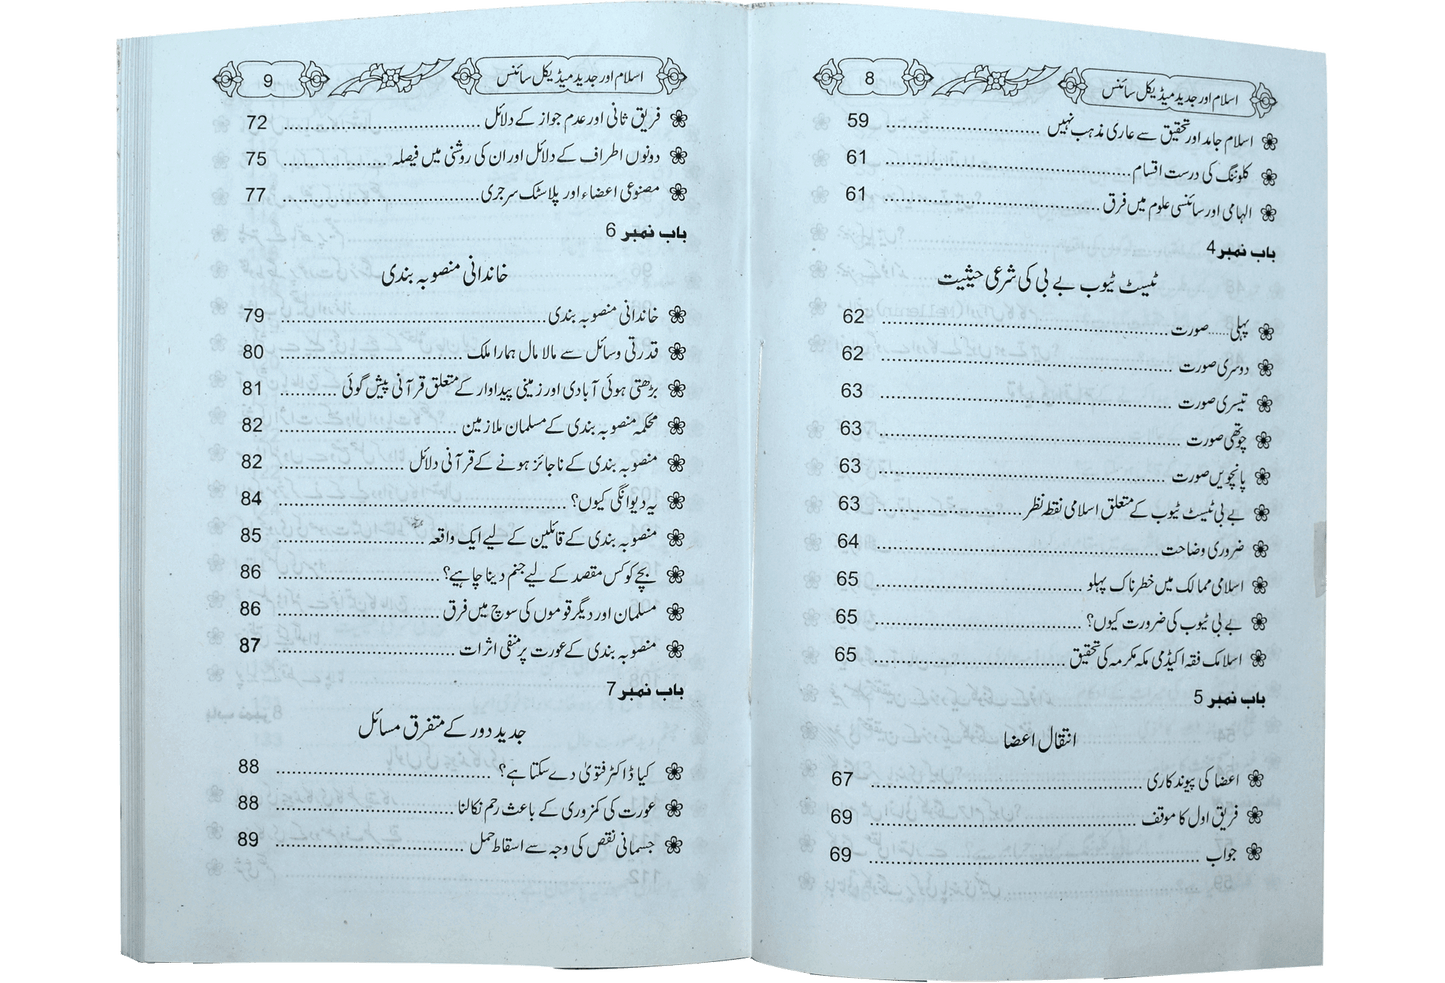 اسلام اور جدید میڈیکل سائنس 8
اسلام جامد اور تحقیق سے عاری مذہب نہیں ........ 59
کلوننگ کی درست اقسام ........ 61
الہامی اور سائنسی علوم میں فرق ........ 61
باب نمبر 4
ٹیسٹ ٹیوب بے بی کی شرعی حیثیت
پہلی ..... صورت ........ 62
دوسری صورت ........ 62
تیسری صورت ........ 63
چوتھی صورت ........ 63
پانچویں صورت ........ 63
بے بی ٹیسٹ ٹیوب کے متعلق اسلامی نقطہ نظر ........ 63
ضروری وضاحت ........ 64
اسلامی ممالک میں خطرناک پہلو ........ 65
بے بی ٹیوب کی ضرورت کیوں؟ ........ 65
اسلامک فقہ اکیڈمی مکہ مکرمہ کی تحقیق ........ 65
باب نمبر 5
انتقال اعضا
اعضا کی پیوند کاری ........ 67
فریق اول کا موقف ........ 69
جواب ........ 69
اسلام اور جدید میڈیکل سائنس 9
فریق ثانی اور عدم جواز کے دلائل ........ 72
دونوں اطراف کے دلائل اور ان کی روشنی میں فیصلہ ........ 75
مصنوعی اعضاء اور پلاسٹک سرجری ........ 77
باب نمبر 6
خاندانی منصوبہ بندی
خاندانی منصوبہ بندی ........ 79
قدرتی وسائل سے مالا مال ہمارا ملک ........ 80
بڑھتی ہوئی آبادی اور زمینی پیداوار کے متعلق قرآنی پیش گوئی ........ 81
محکمہ منصوبہ بندی کے مسلمان ملازمین ........ 82
منصوبہ بندی کے ناجائز ہونے کے قرآنی دلائل ........ 82
یہ دیوانگی کیوں؟ ........ 84
منصوبہ بندی کے قائلین کے لیے ایک واقعہ ........ 85
بچے کو کس مقصد کے لیے جنم دینا چاہیے؟ ........ 86
مسلمان اور دیگر قوموں کی سوچ میں فرق ........ 86
منصوبہ بندی کے عورت پر منفی اثرات ........ 87
باب نمبر 7
جدید دور کے متفرق مسائل
کیا ڈاکٹر فتویٰ دے سکتا ہے؟ ........ 88
عورت کی کمزوری کے باعث رحم نکالنا ........ 88
جسمانی نقص کی وجہ سے اسقاط حمل ........ 89